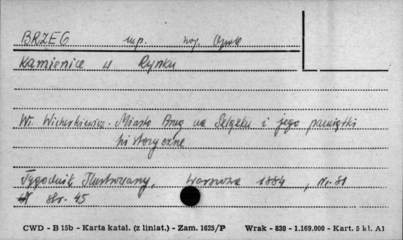 BRZEG m.p. woj. Opole
Kamienice w Rynku
Wł. Wicherkiewicz - Miasto Brzeg na Śląsku i jego pamiątki
historyczne
Tygodnik Ilustrowany, Warszawa 1884, Nr. 81
str. 45
CWD - B 15b - Karta katal. (z liniat.) - Zam. 1625/P Wrak - 830 - 1.169.000 - Kart. 5 kl. A1